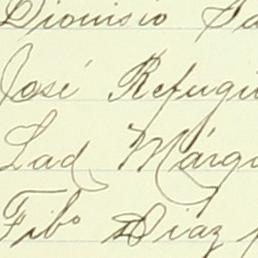 Dionisio Sa
José Refugi
Lad Márqu
Fibº Diaz